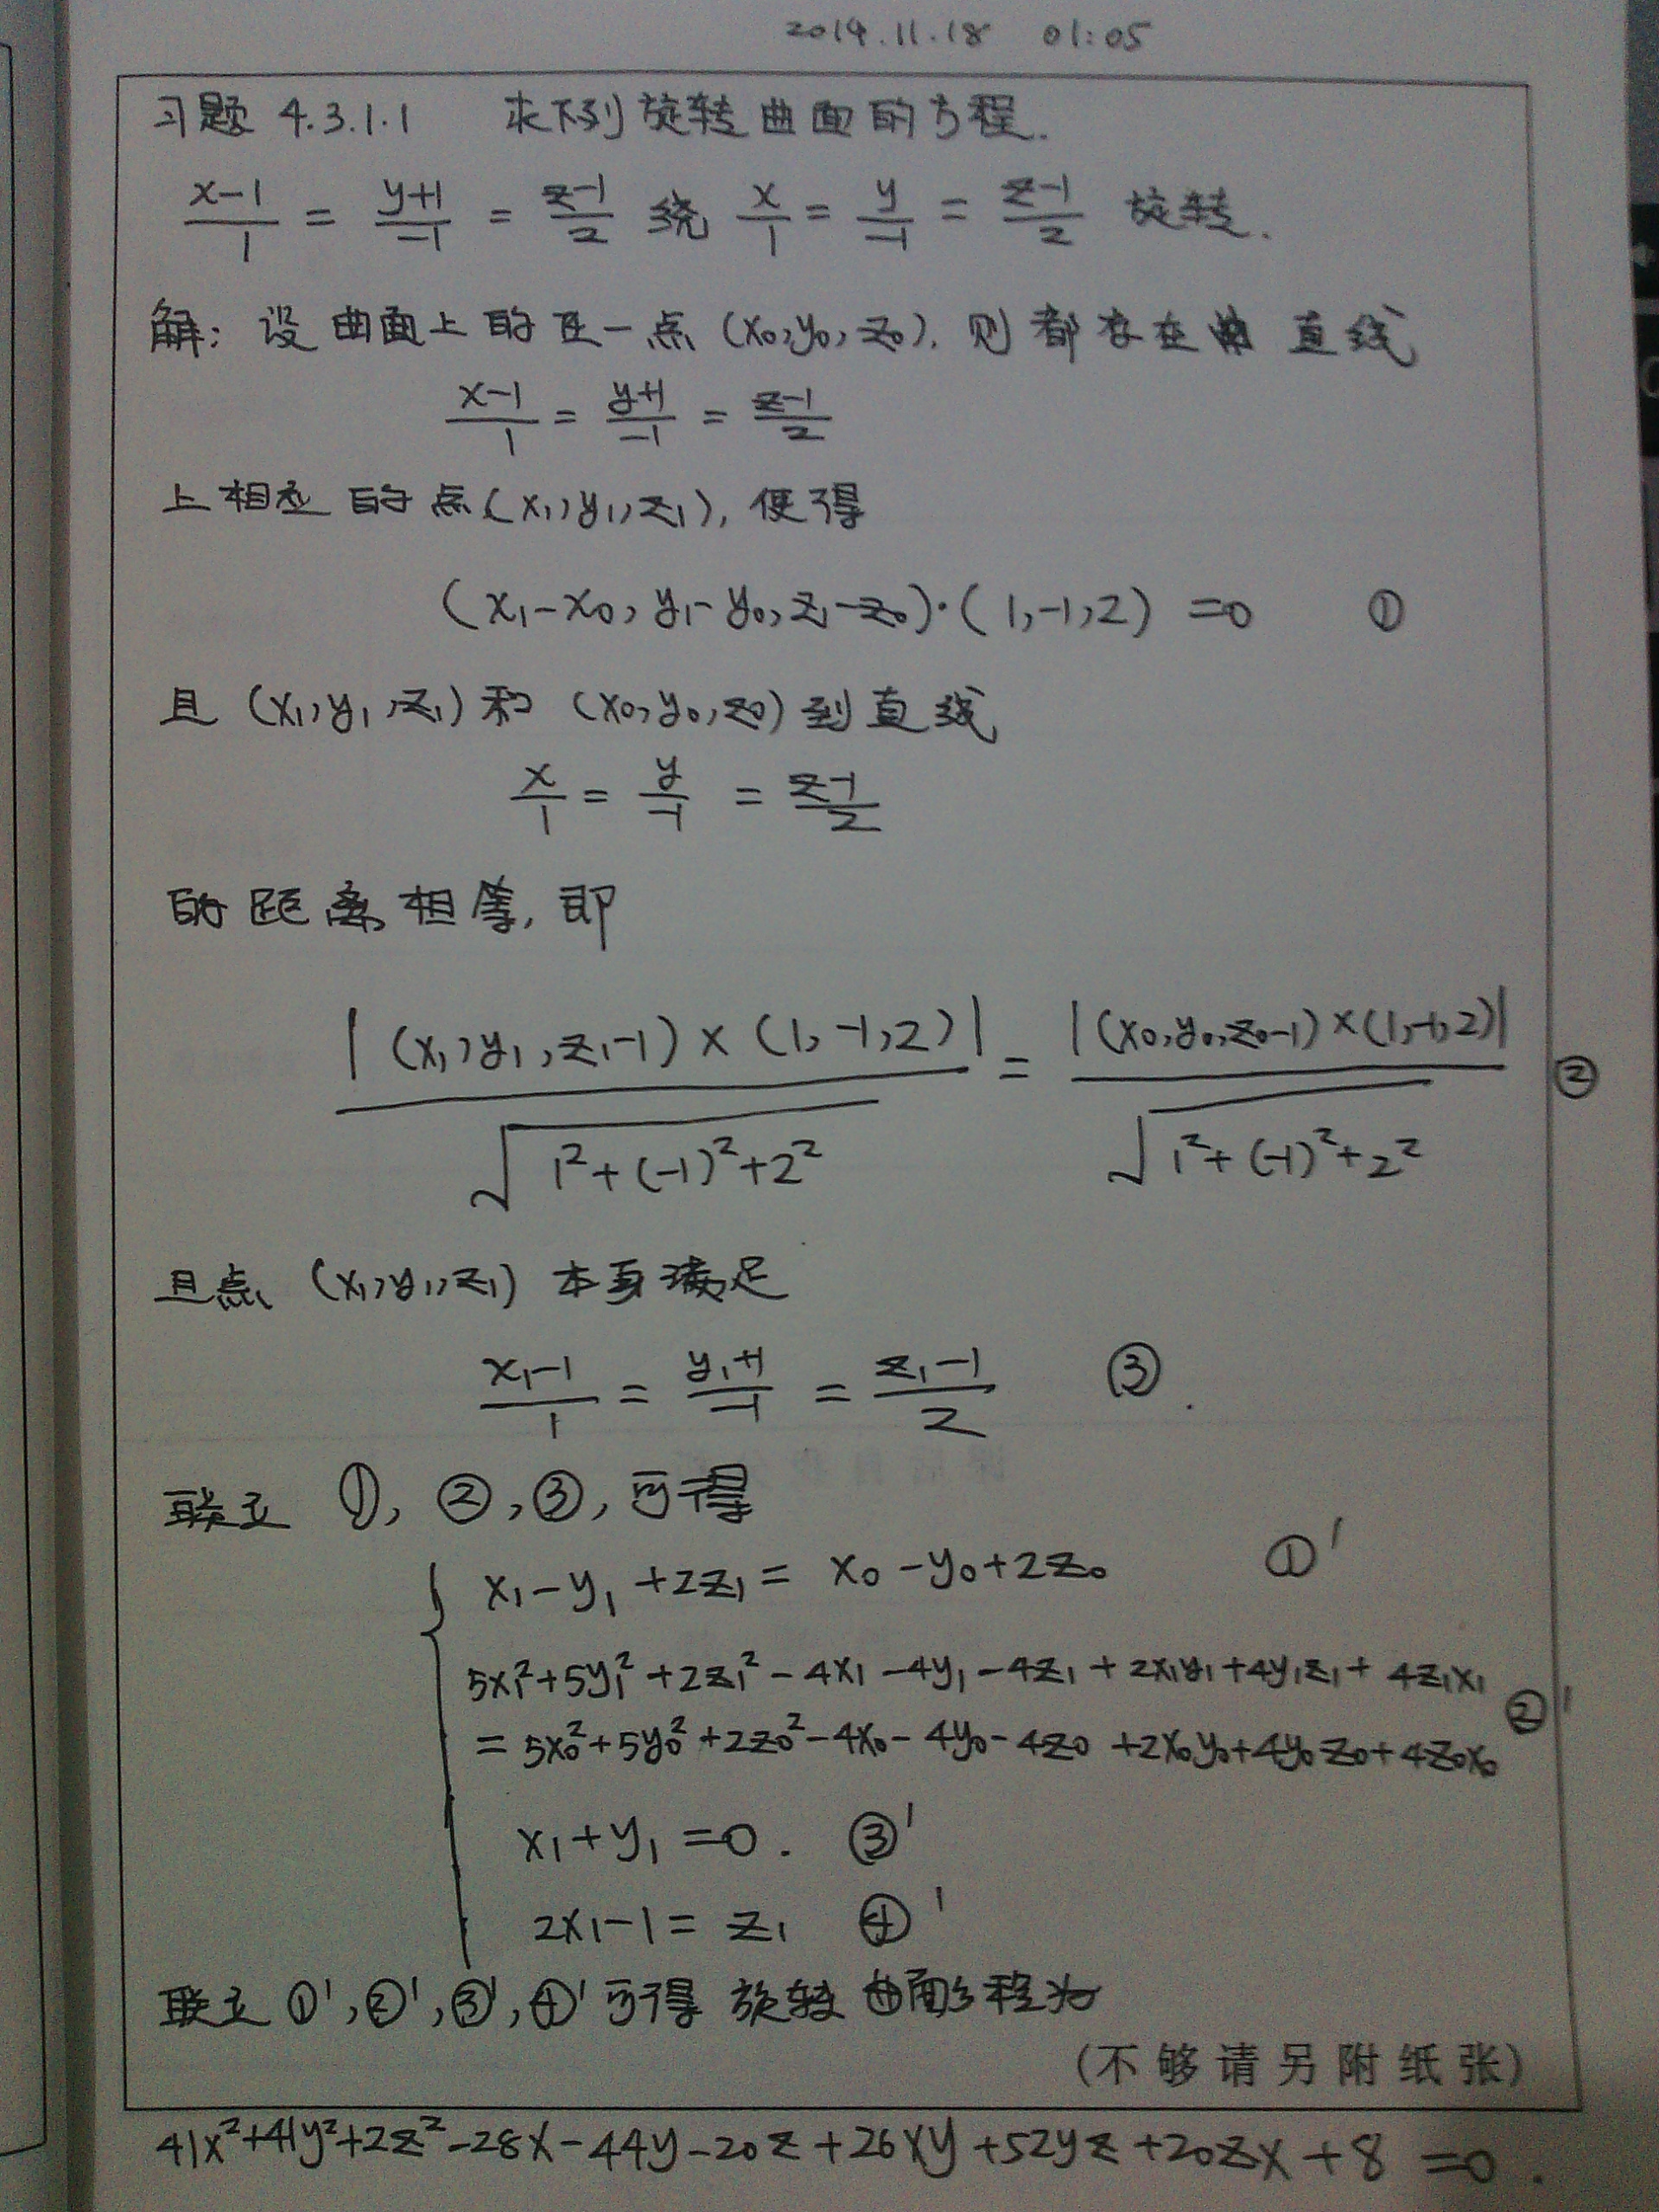 2014.11.18 01:05
习题 4.3.1.1 求下列旋转曲面的方程.
\frac{x-1}{1} = \frac{y+1}{-1} = \frac{z-1}{2} 绕 \frac{x}{1} = \frac{y}{-1} = \frac{z-1}{2} 旋转.
解: 设曲面上的任一点 (x₀, y₀, z₀), 则都存在 直线
\frac{x-1}{1} = \frac{y+1}{-1} = \frac{z-1}{2}
上相应的点 (x₁, y₁, z₁), 使得
(x₁-x₀, y₁-y₀, z₁-z₀)·(1, -1, 2) = 0 ①
且 (x₁, y₁, z₁) 和 (x₀, y₀, z₀) 到直线
\frac{x}{1} = \frac{y}{-1} = \frac{z-1}{2}
的距离相等, 即
\frac{|(x₁, y₁, z₁-1) × (1, -1, 2)|}{\sqrt{1²+(-1)²+2²}} = \frac{|(x₀, y₀, z₀-1) × (1, -1, 2)|}{\sqrt{1²+(-1)²+2²}} ②
且点 (x₁, y₁, z₁) 本身满足
\frac{x₁-1}{1} = \frac{y₁+1}{-1} = \frac{z₁-1}{2} ③.
联立 ①, ②, ③, 可得
x₁-y₁+2z₁ = x₀-y₀+2z₀ ①'
5x₁²+5y₁²+2z₁²-4x₁-4y₁-4z₁+2x₁y₁+4y₁z₁+4z₁x₁
= 5x₀²+5y₀²+2z₀²-4x₀-4y₀-4z₀+2x₀y₀+4y₀z₀+4z₀x₀ ②'
x₁+y₁=0. ③'
2x₁-1=z₁ ④'
联立 ①', ②', ③', ④' 可得 旋转曲面方程为
(不够请另附纸张)
41x²+41y²+2z²-28x-44y-20z+26xy+52yz+20zx+8=0.